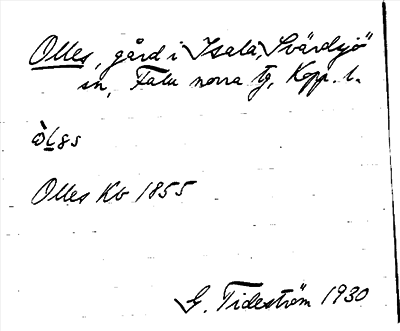 Olles, gård i Isala, Svärdsjö
sn, Falu norra tg, Kopp. l.
Olles Kb 1855
G. Tideström 1930